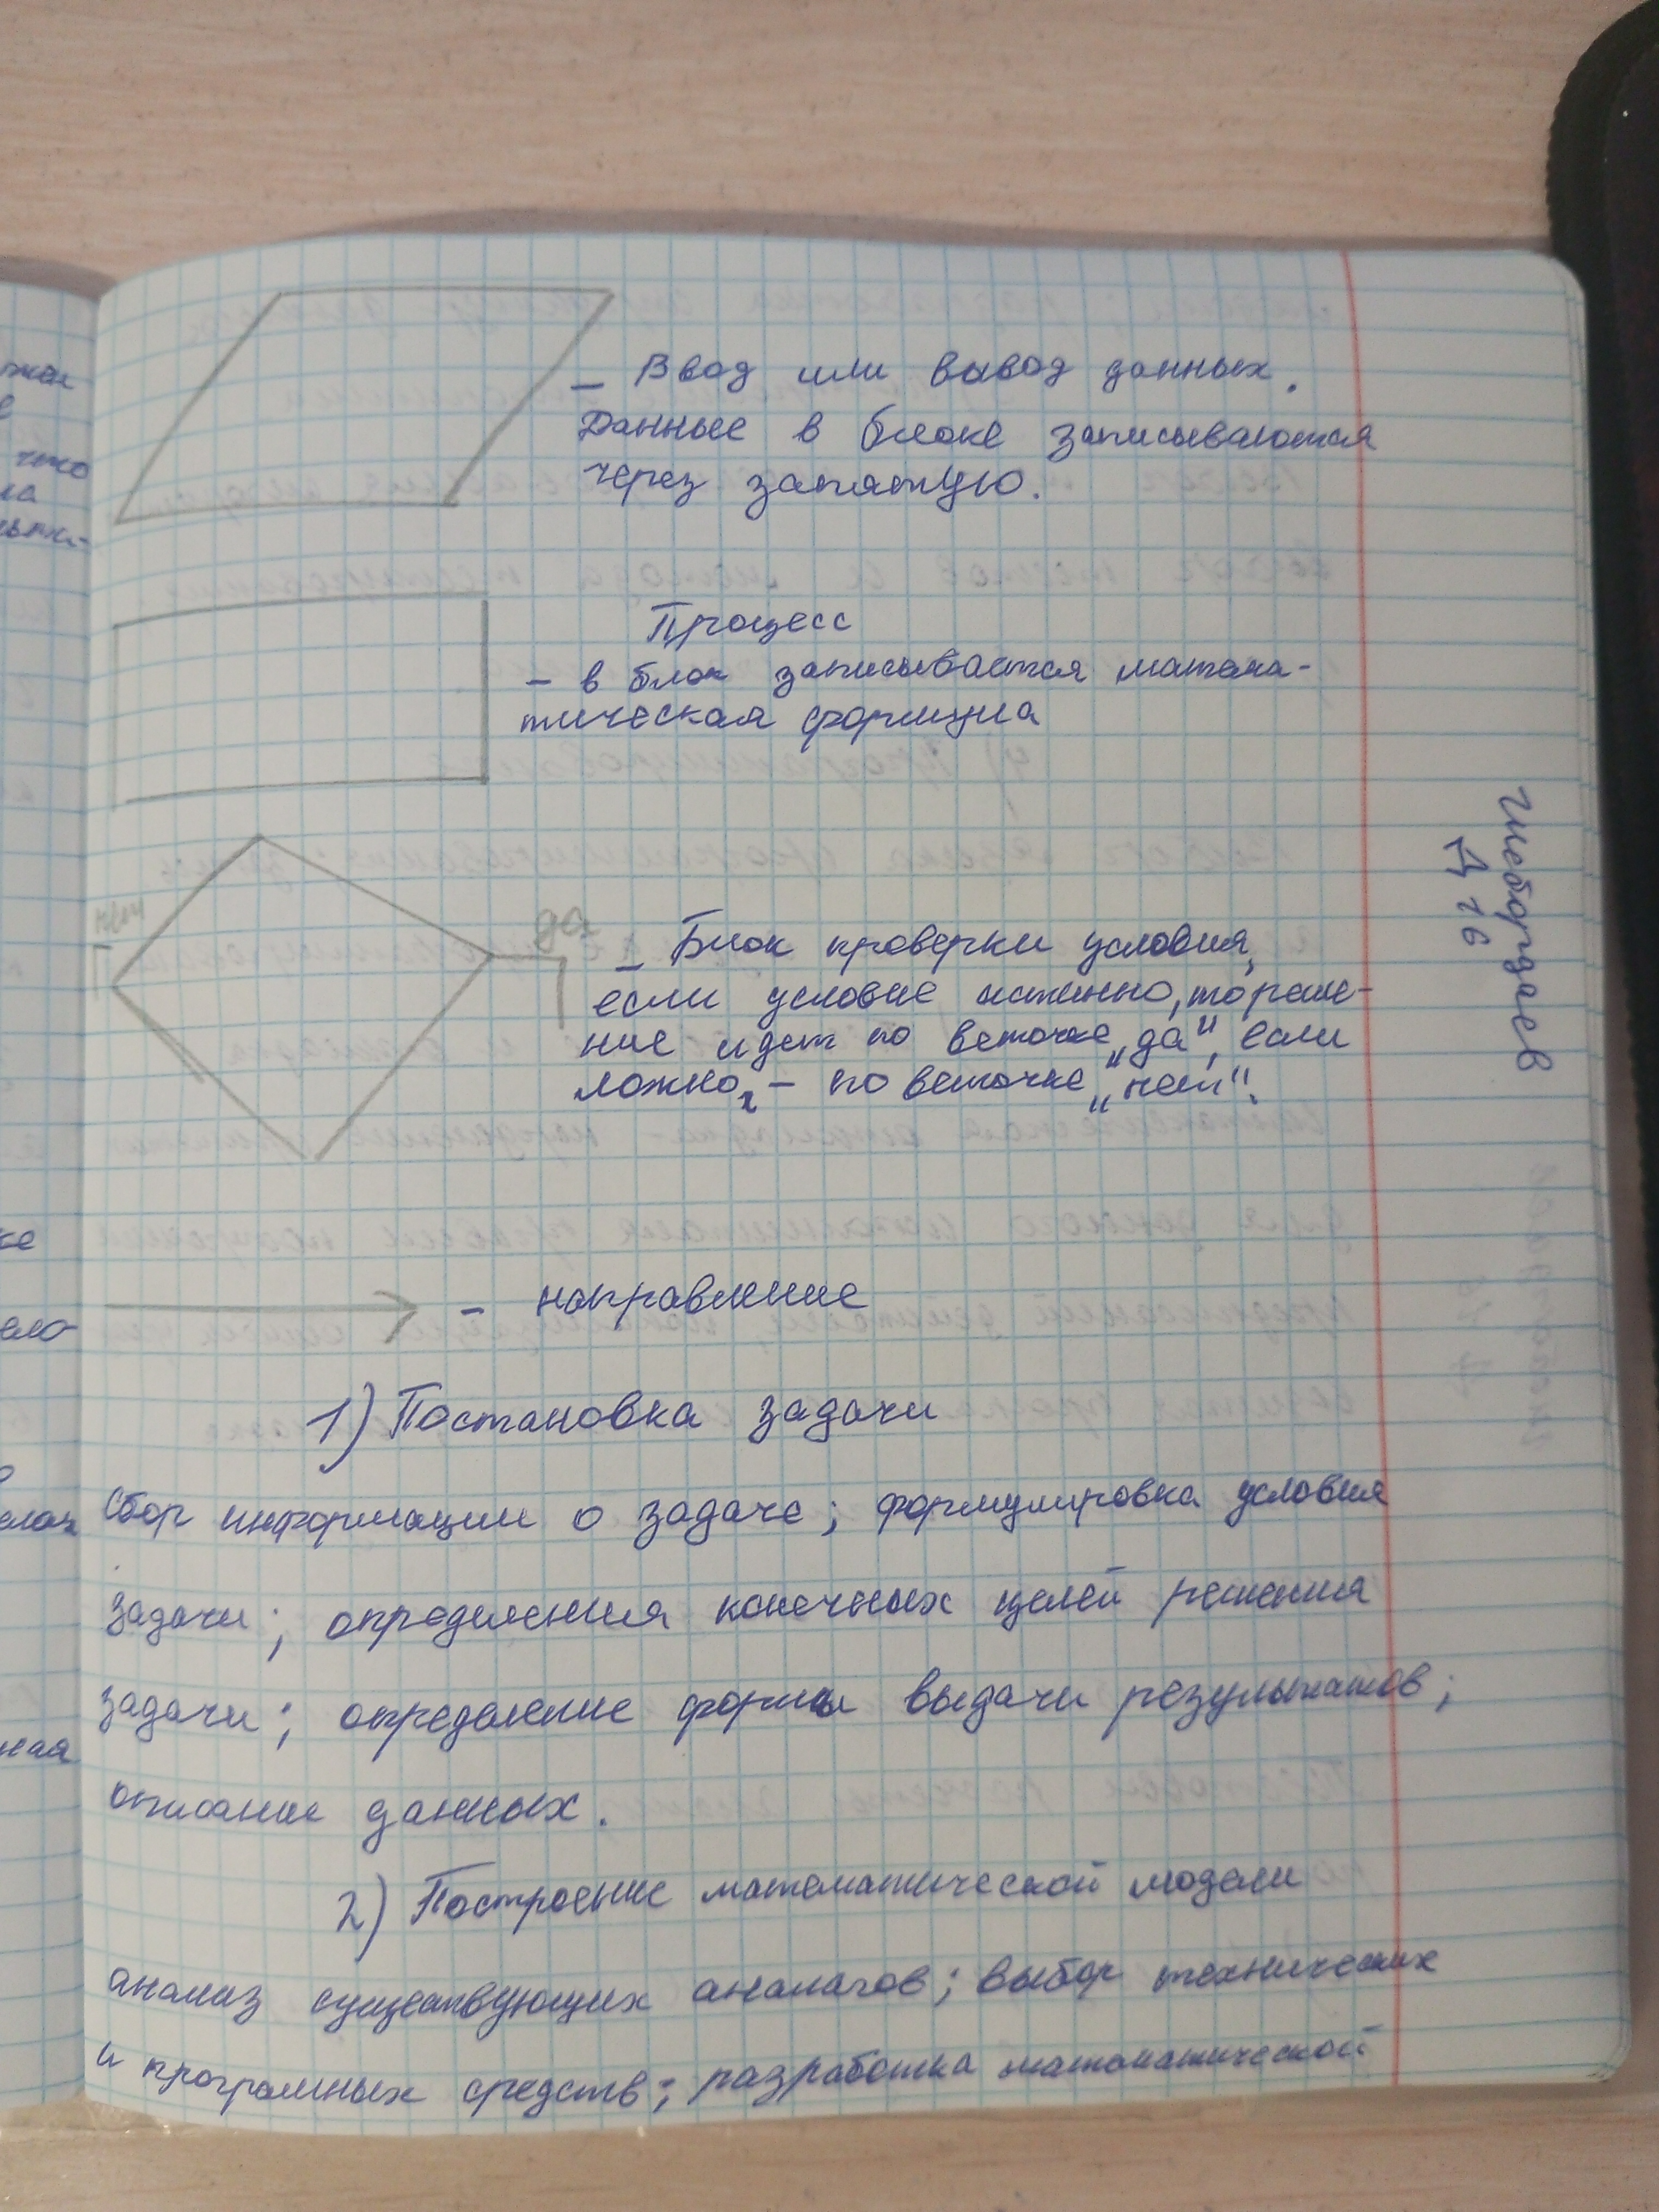 - Ввод или вывод данных.
Данные в блоке записываются
через запятую.
Процесс
- в блок записывается матема-
тическая формула
нет
да
- Блок проверки условия,
если условие истенно, то реше-
ние идет по веточке „да", если
ложно, - по веточке „нет".
- направление
1) Постановка задачи
Сбор информации о задаче; формулировка условия
задачи; определения конечных целей решения
задачи; определение формы выдачи результатов;
описание данных.
2) Построение математической модели
анализ существующих аналогов; выбор технических
и програмных средств; разработка математической
Д 16